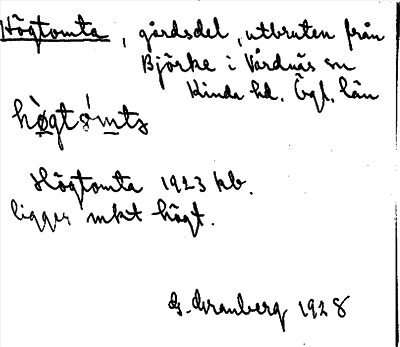 Högtomta, gårdsdel, utbruten från
Björke i Vårdnäs sn
Kinda hd. Ögl. län
Högtomta 1923 kb.
ligger mkt högt.
G. Granberg 1928